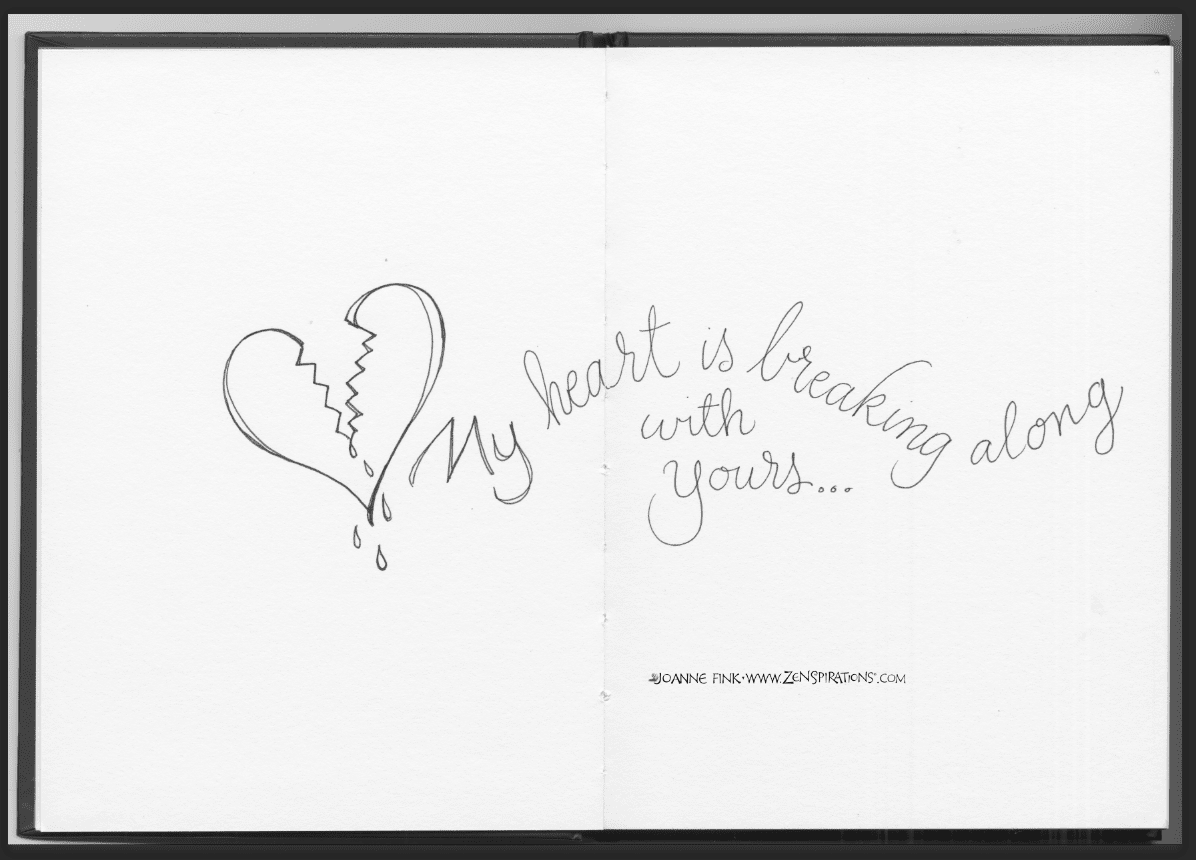 My heart is breaking along
with
yours...
JOANNE FINK•WWW.ZENSPIRATIONS®.COM